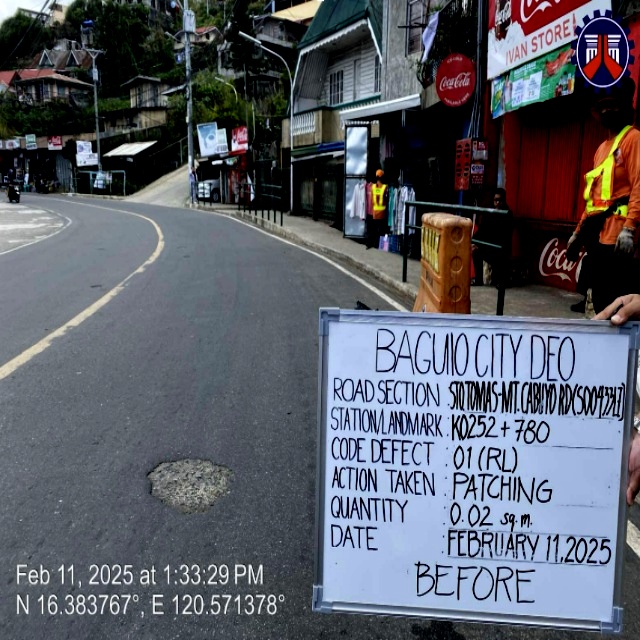 Coca-Cola
IVAN STORE
Coca-Cola
Coca-Cola
BAGUIO CITY DEO
ROAD SECTION : STO TOMAS-MT. CABUYO RD
STATION/LANDMARK : K0252+780
CODE DEFECT : 01 (RL)
ACTION TAKEN : PATCHING
QUANTITY : 0.02 sq.m.
DATE : FEBRUARY 11, 2025
BEFORE
Feb 11, 2025 at 1:33:29 PM
N 16.383767°, E 120.571378°